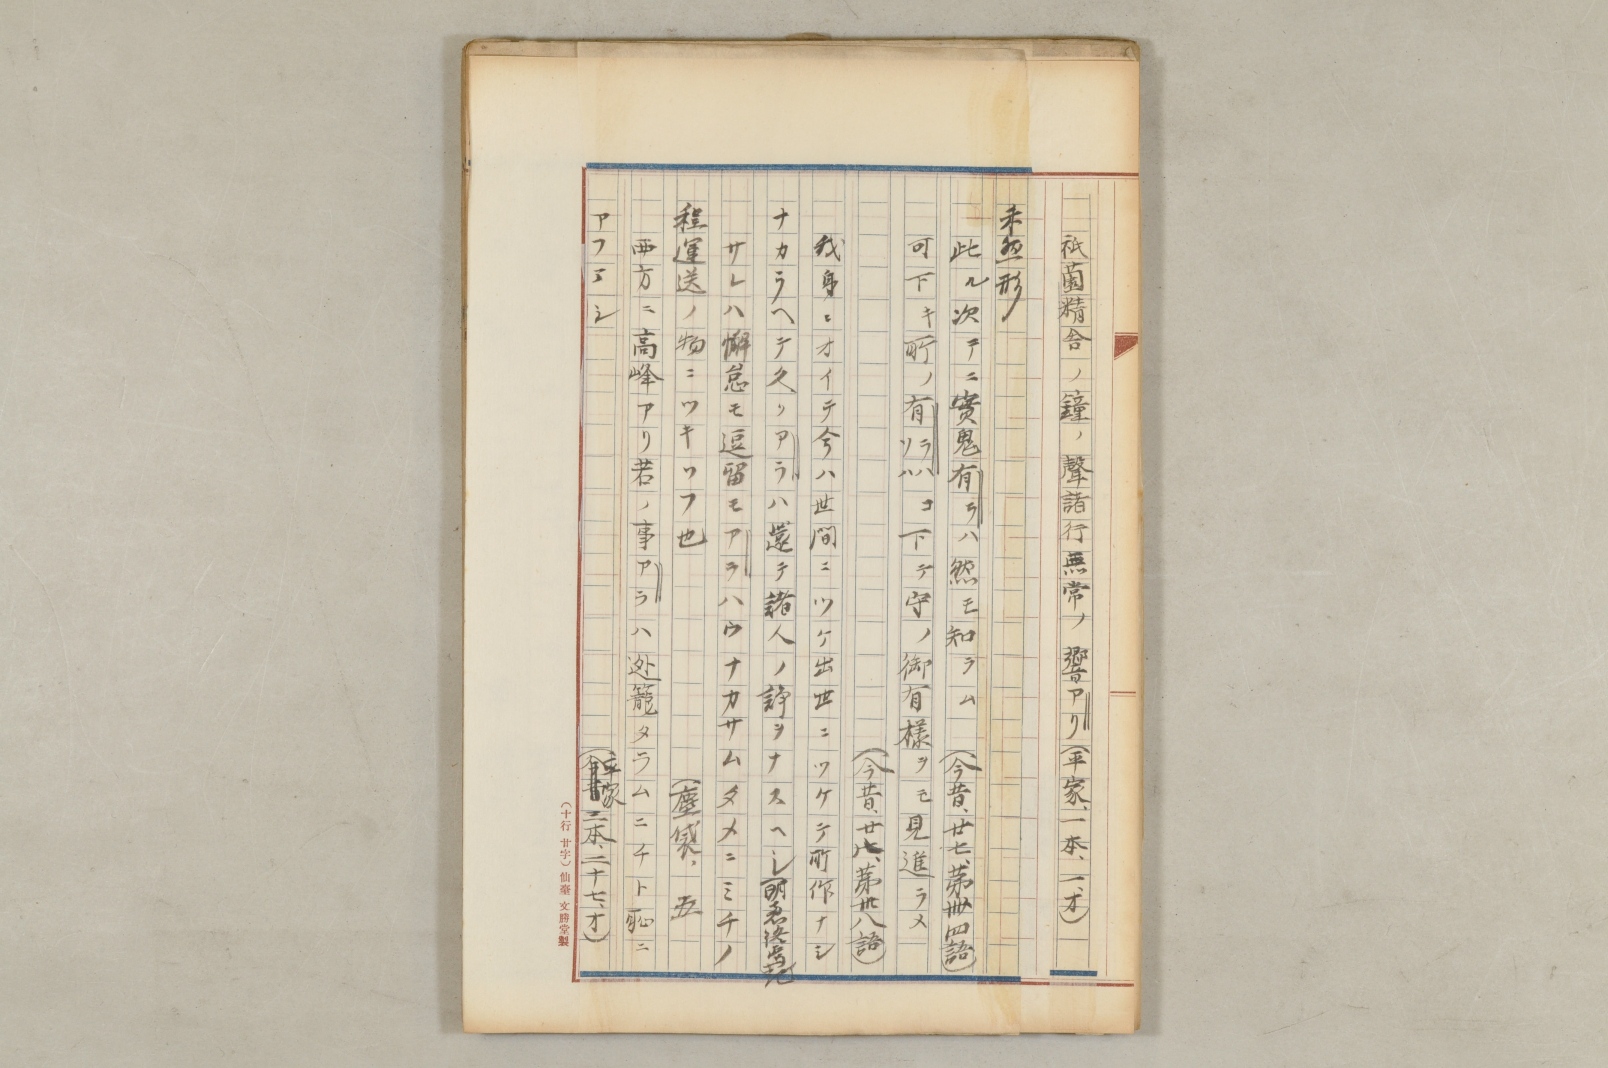 祇薗精舎ノ鐘ノ聲諸行無常ノ響アリ(平家、一本、一、オ)
未然形
此ル次テニ實鬼有ラハ然モ知ラム(今昔、廿七、第卌四語)
可下キ所ノ有ラハコ下テ守ノ御有様ヲモ見進ラメ
ツハ
(今昔、廿八、第卅八語)
我身ニオイテ今ハ世間ニツケ出世ニツケテ所作ナシ
ナカラヘテ久シクアラハ還テ諸人ノ諍ヲナスヘシ
サレハ懈怠モ逗留モアラハウナカサムタメニミチノ
程運送ノ物ニツキソフ也(塵袋、五
西方ニ高峰アリ若ノ事アラハ逃籠タラムニチト恥ニ
アフマシ(平家二本、二十七、オ)
(十行 廿字) 仙臺 文勝堂製